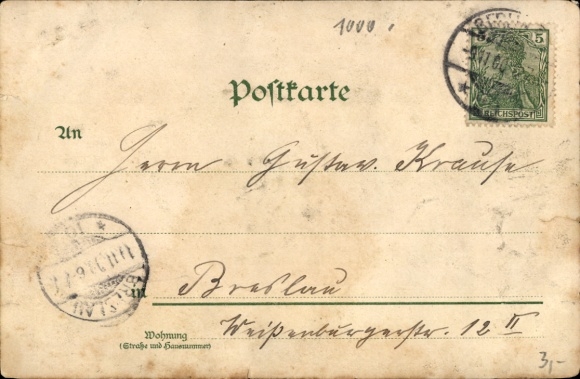 1000.
5
REICHSPOST
Postkarte
An
Herrn Gustav Krause
BRESLAU
in Breslau
Weißenburgerstr. 12 II
Wohnung
(Straße und Hausnummer)
3,-